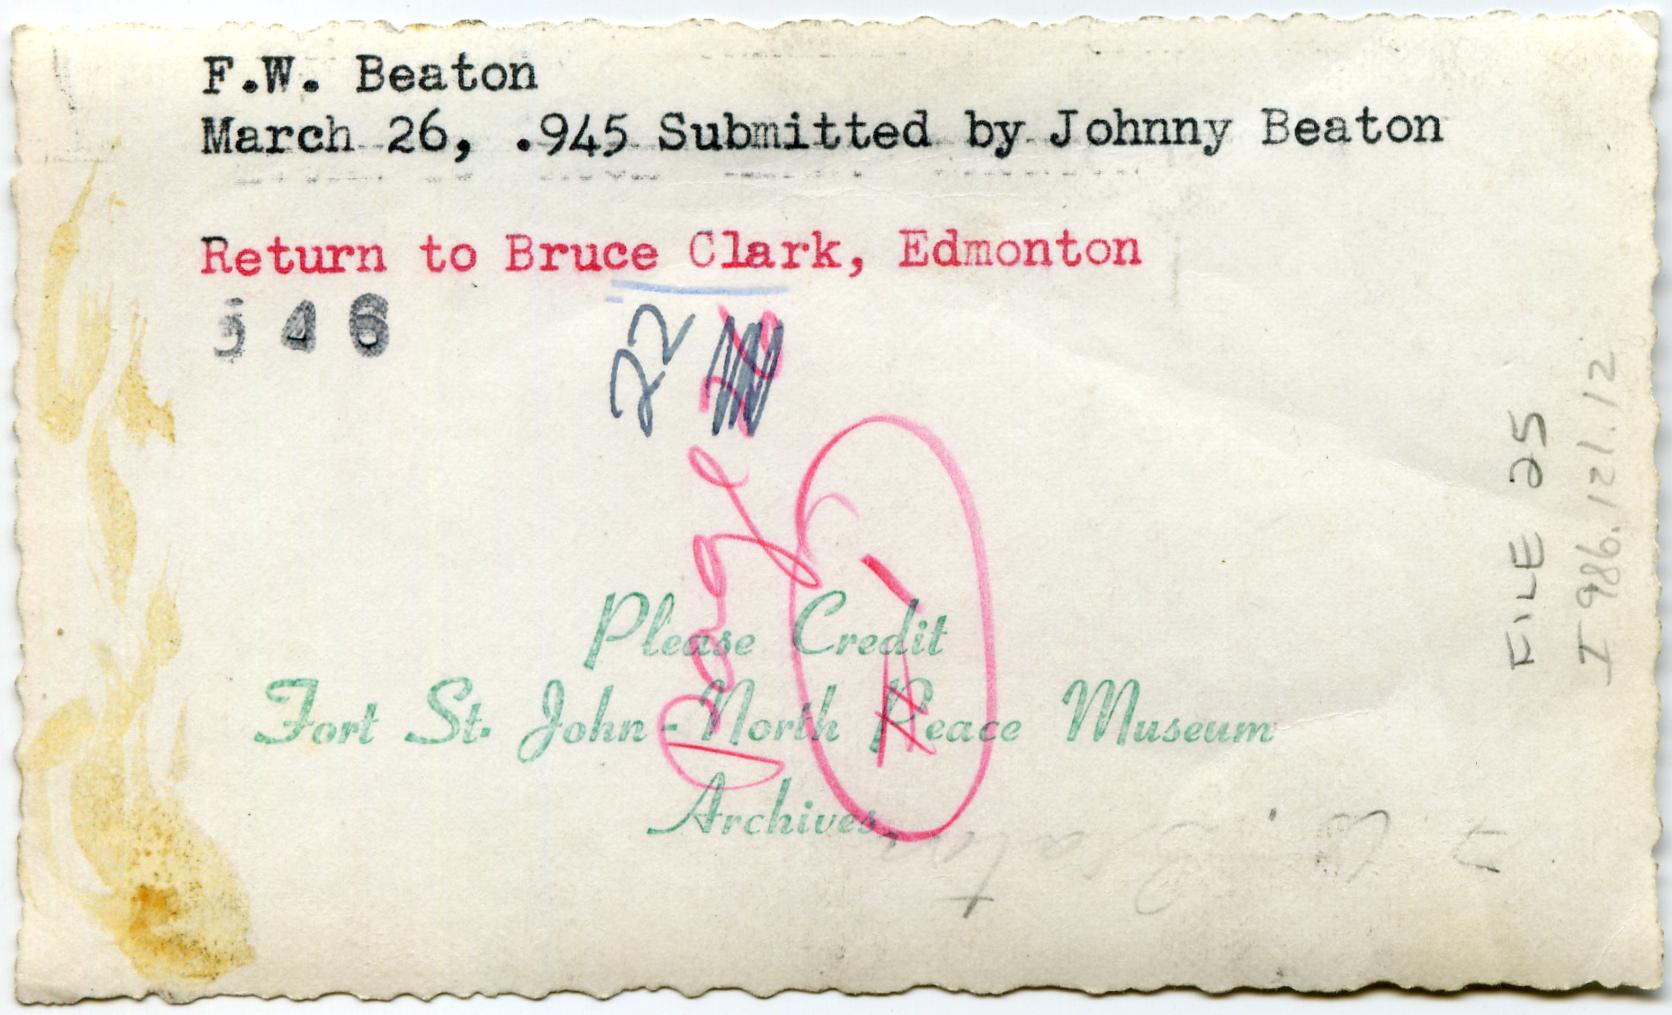 F.W. Beaton
March 26, .945 Submitted by Johnny Beaton
Return to Bruce Clark, Edmonton
546
22
Page
Please Credit
Fort St. John-North Peace Museum
Archives
FILE 25
I 986.121.12
F. W. Beaton